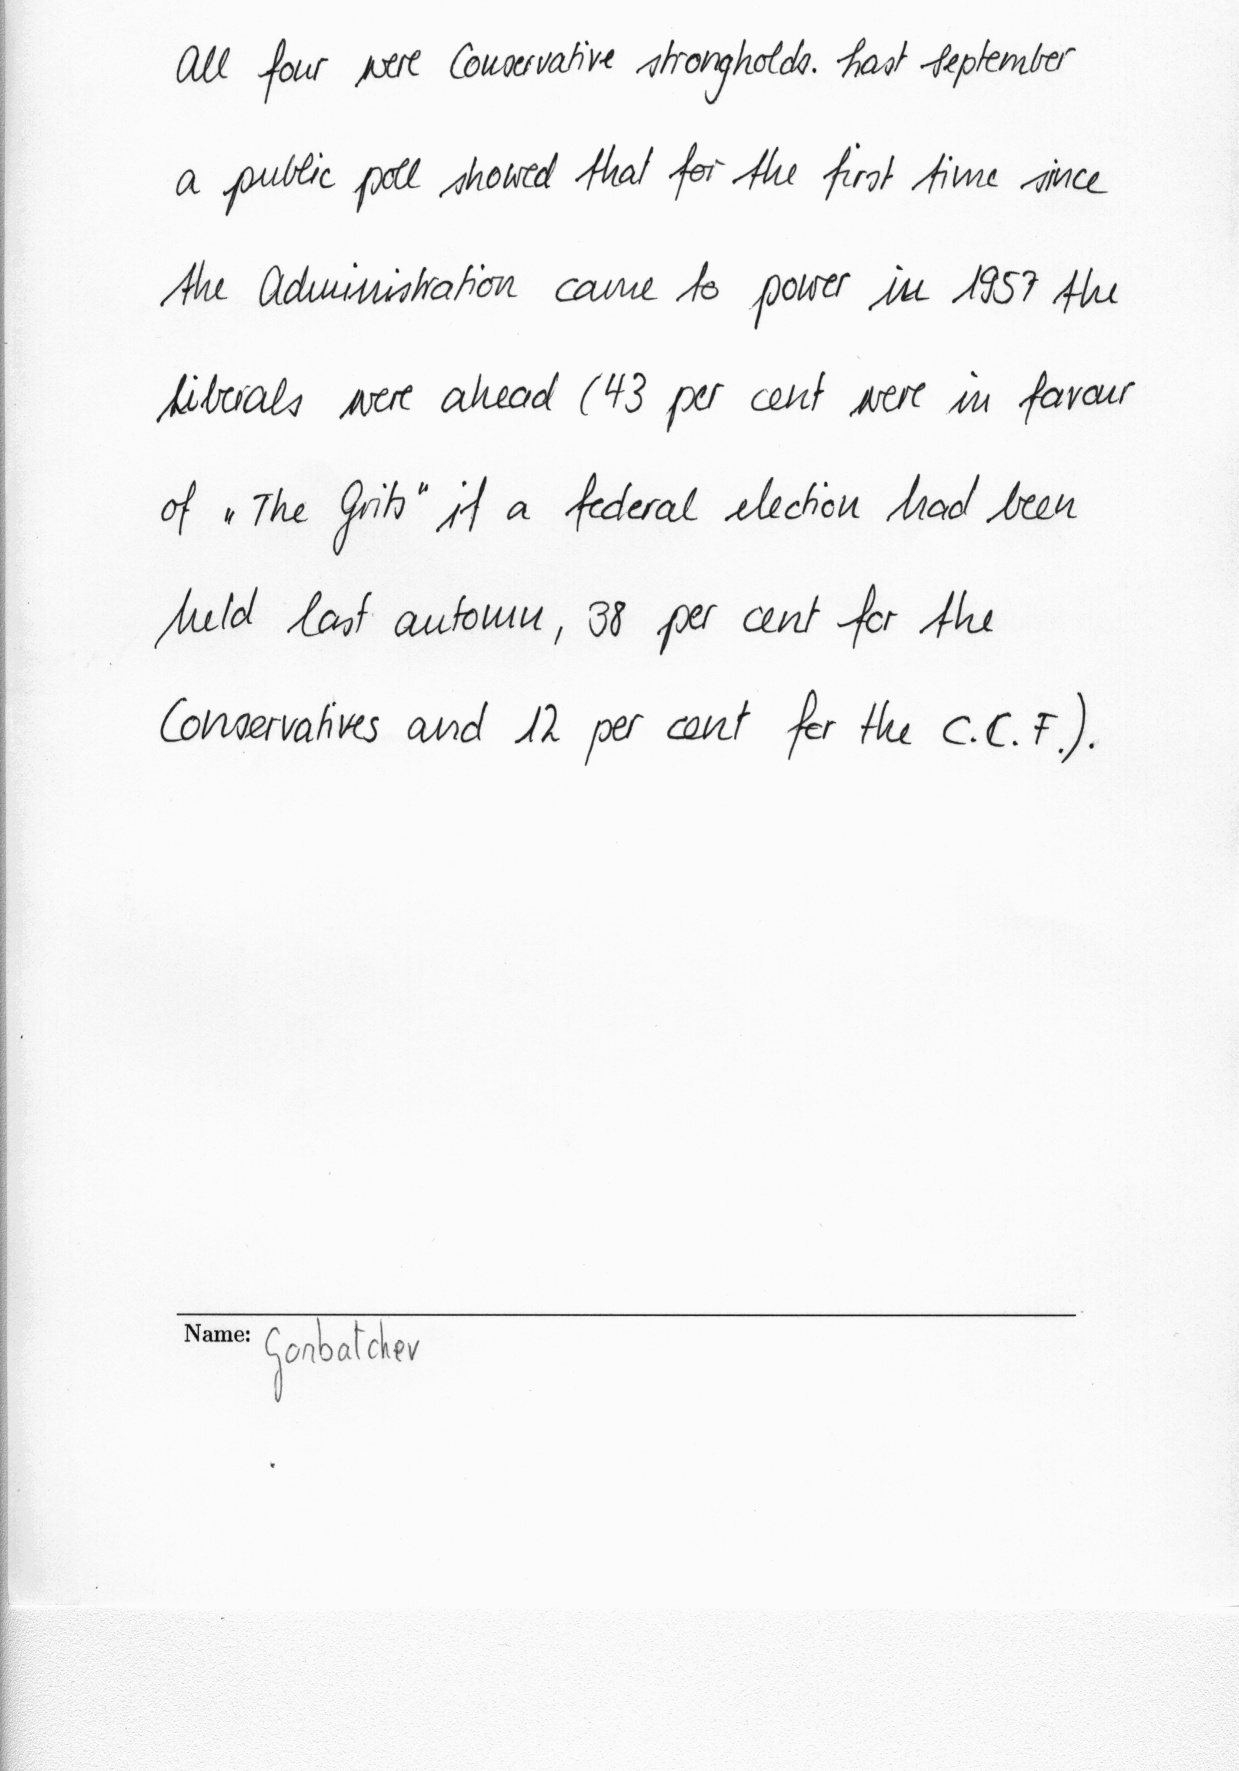 All four were Conservative strongholds. Last September
a public poll showed that for the first time since
the Administration came to power in 1957 the
Liberals were ahead (43 per cent were in favour
of „The Grits“ if a federal election had been
held last autumn, 38 per cent for the
Conservatives and 12 per cent for the C.C.F.).
Name: Gorbatchev